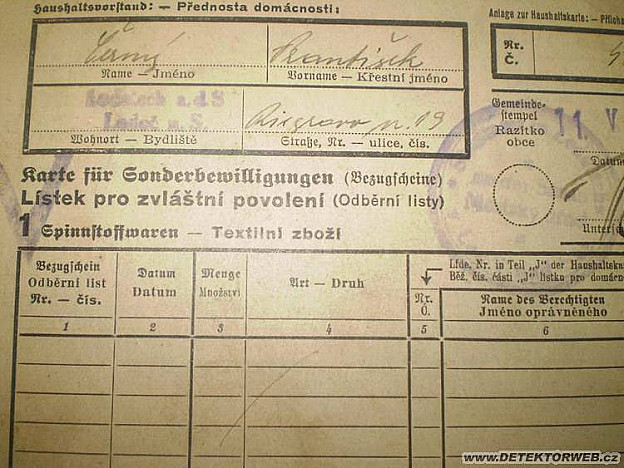 Haushaltsvorstand: — Přednosta domácnosti:
Anlage zur Haushaltskarte: — Příloh
Černý František
Name — Jméno Vorname — Křestní jméno
Nr.
Č.
Ledetsch a.d S
Ledeč n.S.
Riegrova 19
Wohnort — Bydliště Straße, Nr. — ulice, čís.
Gemeinde-
stempel
Razítko
obce
11 V
Datum
Untersch
Karte für Sonderbewilligungen (Bezugscheine)
Lístek pro zvláštní povolení (Odběrní listy)
1 Spinnstoffwaren — Textilní zboží
Bezugschein
Odběrní list
Nr. — čís.
Datum
Datum
Menge
Množství
Art — Druh
Lfde. Nr. in Teil „J" der Haushaltska
Běž. čís. části „J" lístku pro domácn
Nr.
Č.
Name des Berechtigten
Jméno oprávněného
1 2 3 4 5 6
www.DETEKTORWEB.cz